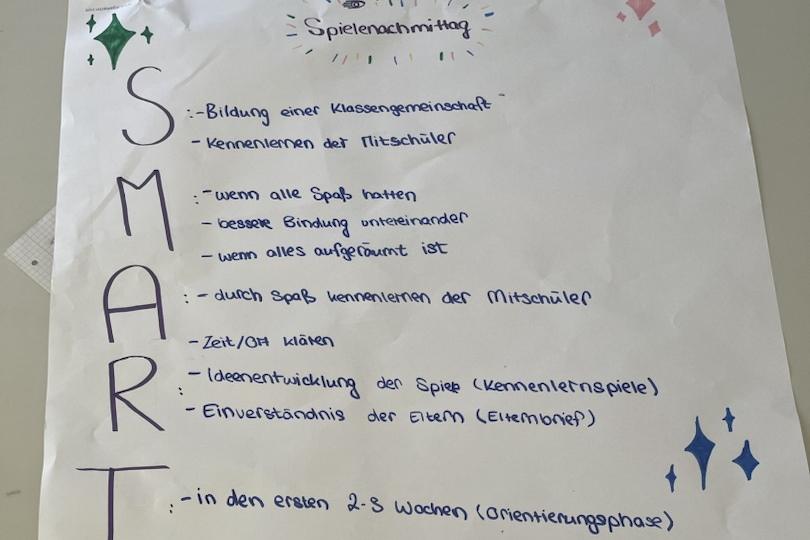 Spielenachmittag
S :-Bildung einer Klassengemeinschaft
- Kennenlernen der Mitschüler
M :- wenn alle Spaß hatten
- bessere Bindung untereinander
- wenn alles aufgeräumt ist
A :- durch Spaß kennenlernen der Mitschüler
- Zeit/Ort klären
R : - Ideenentwicklung der Spiele (Kennenlernspiele)
- Einverständnis der Eltern (Elternbrief)
T :- in den ersten 2-3 Wochen (Orientierungsphase)